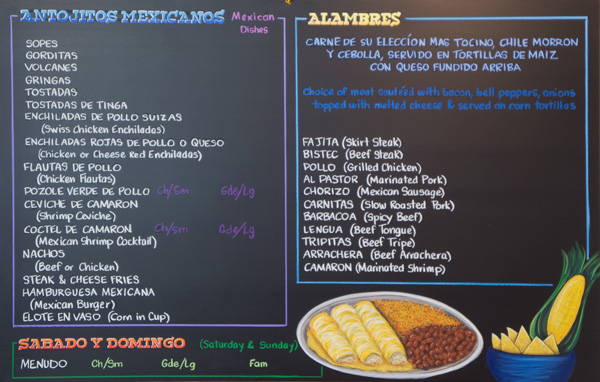 ANTOJITOS MEXICANOS Mexican Dishes
SOPES
GORDITAS
VOLCANES
GRINGAS
TOSTADAS
TOSTADAS DE TINGA
ENCHILADAS DE POLLO SUIZAS
(Swiss Chicken Enchiladas)
ENCHILADAS ROJAS DE POLLO O QUESO
(Chicken or Cheese Red Enchiladas)
FLAUTAS DE POLLO
(Chicken Flautas)
POZOLE VERDE DE POLLO Ch/Sm Gde/Lg
CEVICHE DE CAMARON
(Shrimp Ceviche)
COCTEL DE CAMARON Ch/Sm Gde/Lg
(Mexican Shrimp Cocktail)
NACHOS
(Beef or Chicken)
STEAK & CHEESE FRIES
HAMBURGUESA MEXICANA
(Mexican Burger)
ELOTE EN VASO (Corn in Cup)
SABADO Y DOMINGO (Saturday & Sunday)
MENUDO Ch/Sm Gde/Lg Fam
ALAMBRES
CARNE DE SU ELECCIÓN MAS TOCINO, CHILE MORRON
Y CEBOLLA, SERVIDO EN TORTILLAS DE MAIZ
CON QUESO FUNDIDO ARRIBA
Choice of meat sautéed with bacon, bell peppers, onions
topped with melted cheese & served on corn tortillas
FAJITA (Skirt Steak)
BISTEC (Beef Steak)
POLLO (Grilled Chicken)
AL PASTOR (Marinated Pork)
CHORIZO (Mexican Sausage)
CARNITAS (Slow Roasted Pork)
BARBACOA (Spicy Beef)
LENGUA (Beef Tongue)
TRIPITAS (Beef Tripe)
ARRACHERA (Beef Arrachera)
CAMARON (Marinated Shrimp)